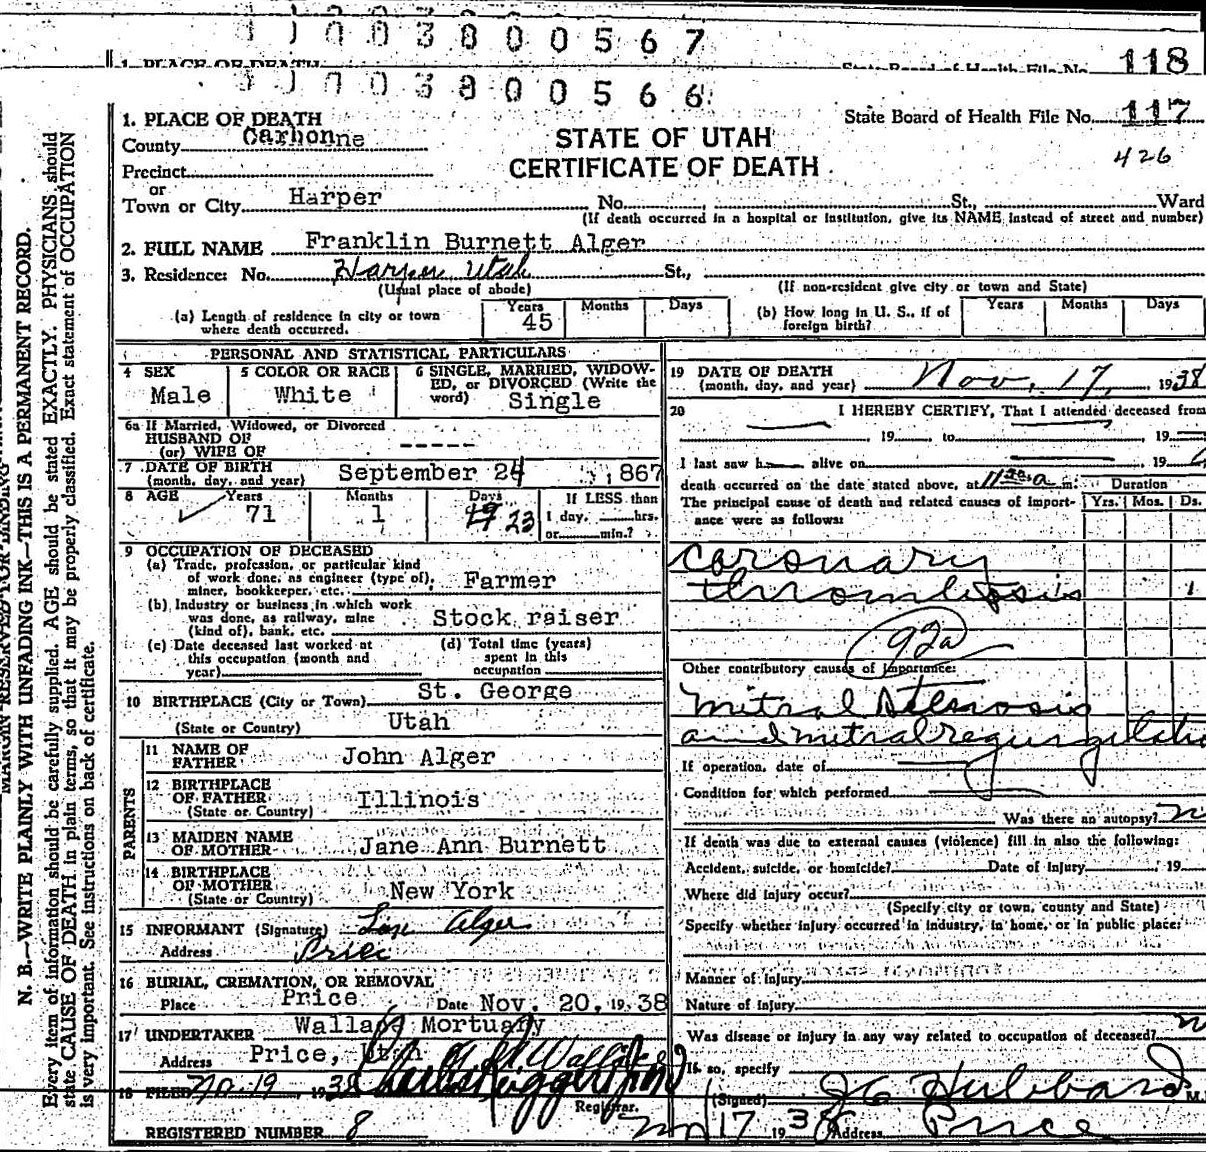 1 1 0 0 3 8 0 0 5 6 7
1. PLACE OF DEATH State Board of Health File No. 118
1 1 0 0 3 8 0 0 5 6 6
1. PLACE OF DEATH State Board of Health File No. 117
County Carbon
STATE OF UTAH
426
Precinct
CERTIFICATE OF DEATH
or
Town or City Harper No. St., Ward
(If death occurred in a hospital or institution, give its NAME instead of street and number)
2. FULL NAME Franklin Burnett Alger
3. Residence: No. Harper Utah St.,
(Usual place of abode) (If non-resident give city or town and State)
(a) Length of residence in city or town where death occurred. Years 45 Months Days
(b) How long in U. S., if of foreign birth? Years Months Days
PERSONAL AND STATISTICAL PARTICULARS
4 SEX Male
5 COLOR OR RACE White
6 SINGLE, MARRIED, WIDOWED, or DIVORCED (Write the word) Single
6a If Married, Widowed, or Divorced
HUSBAND OF
(or) WIFE OF -----
7 DATE OF BIRTH
(month, day, and year) September 24, 1867
8 AGE Years 71 Months 1 Days 23
If LESS than
1 day, hrs.
or min.?
9 OCCUPATION OF DECEASED
(a) Trade, profession, or particular kind
of work done, as engineer (type of),
miner, bookkeeper, etc. Farmer
(b) Industry or business in which work
was done, as railway, mine
(kind of), bank, etc. Stock raiser
(c) Date deceased last worked at
this occupation (month and
year)
(d) Total time (years)
spent in this
occupation
10 BIRTHPLACE (City or Town) St. George
(State or Country) Utah
PARENTS
11 NAME OF
FATHER John Alger
12 BIRTHPLACE
OF FATHER
(State or Country) Illinois
13 MAIDEN NAME
OF MOTHER Jane Ann Burnett
14 BIRTHPLACE
OF MOTHER
(State or Country) New York
15 INFORMANT (Signature) Alger
Address Price
16 BURIAL, CREMATION, OR REMOVAL
Place Price Date Nov. 20, 1938
17 UNDERTAKER Wallace Mortuary
Address Price, Utah
18 FILED 19, 1938
Registrar.
REGISTERED NUMBER 8
19 DATE OF DEATH
(month, day, and year) Nov, 17, 1938
20 I HEREBY CERTIFY, That I attended deceased from
19 to 19
I last saw h alive on 19
death occurred on the date stated above, at 11 a m. Duration
The principal cause of death and related causes of import- Yrs. Mos. Ds.
ance were as follows:
coronary
thrombosis 1
92a
Other contributory causes of importance:
mitral stenosis
and mitral regurgitation
If operation, date of
Condition for which performed
Was there an autopsy?
If death was due to external causes (violence) fill in also the following:
Accident, suicide, or homicide? Date of injury 19
Where did injury occur?
(Specify city or town, county and State)
Specify whether injury occurred in industry, in home, or in public place:
Manner of injury
Nature of injury
Was disease or injury in any way related to occupation of deceased?
If so, specify
(Signed) J C Hubbard M.
17 1938 Address Price
MARGIN RESERVED FOR BINDING
N. B.—WRITE PLAINLY WITH UNFADING INK—THIS IS A PERMANENT RECORD.
Every item of information should be carefully supplied. AGE should be stated EXACTLY. PHYSICIANS should
state CAUSE OF DEATH in plain terms, so that it may be properly classified. Exact statement of OCCUPATION
is very important. See instructions on back of certificate.